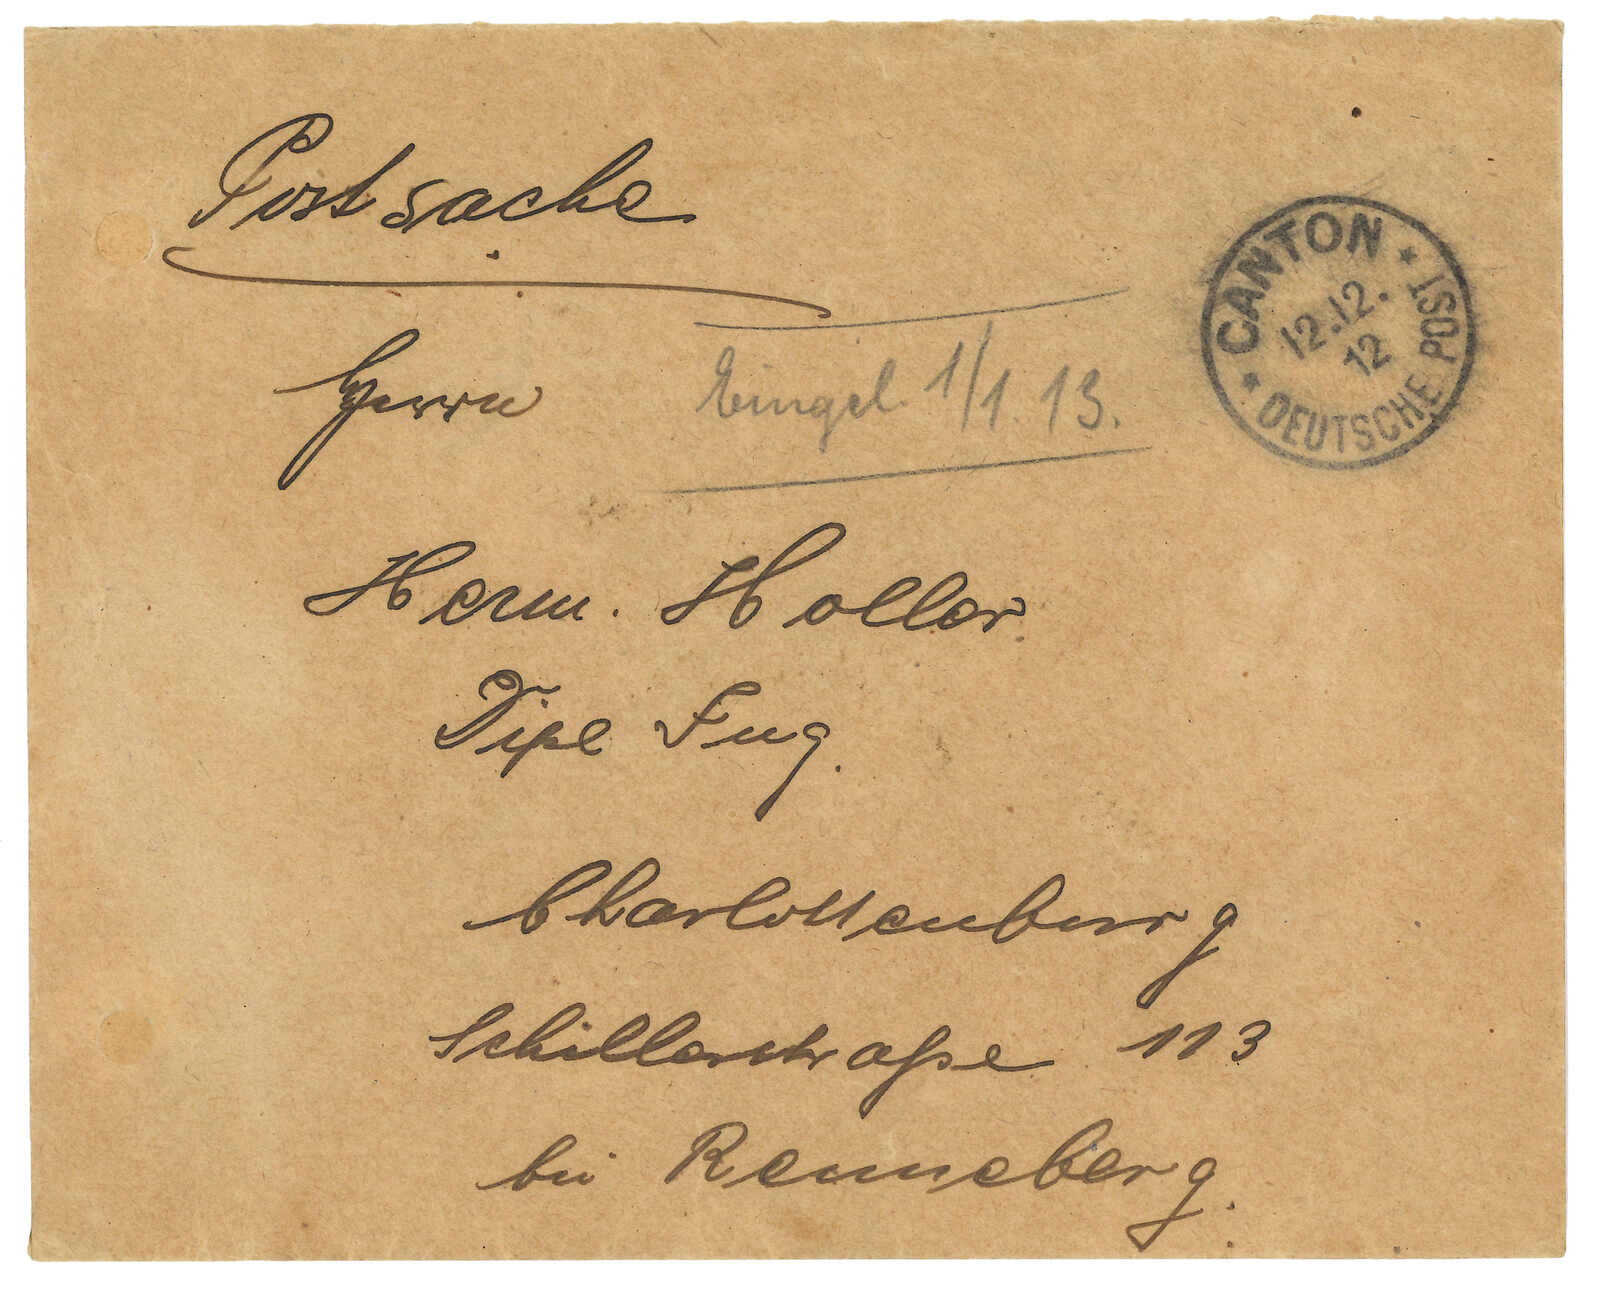 Postsache
CANTON
12.12.
12
DEUTSCHE POST
Herrn
Eingel. 1/1. 13.
Herm. Holler
Dipl Ing.
Charlottenburg
Schillerstraße 113
bei Renneberg.